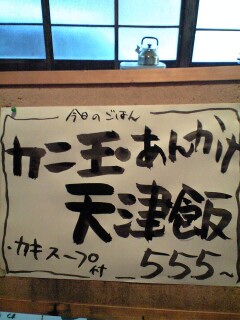 今日のごはん
カニ玉あんかけ
天津飯
・カキスープ付 555~